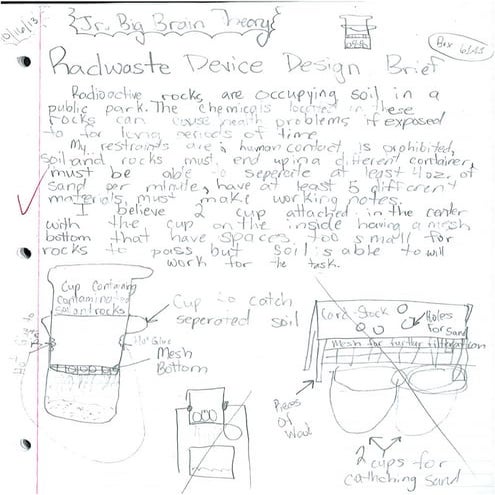 10/6/13
Jr. Big Brain Theory
Radwaste Device Design Brief
Radioactive rocks are occupying soil in a
public park. The chemicals located in these
rocks can cause health problems if exposed
to for long periods of time.
My restraints are: human contact is prohibited,
soil and rocks must end up in a different container,
must be able to seperate at least 4oz. of
sand per minute, have at least 5 different
materials, must make working notes.
I believe 2 cup attached in the center
with the cup on the inside having a mesh
bottom that have spaces too small for
rocks to pass but soil is able to will
work for the task.
Cup containing
contaminated
soil and rocks
Cup to catch
seperated soil
Hot Glue
Hot Glue
Mesh
Bottom
Card-Stock
Holes
for sand
Mesh for further filteration
Pieces
of
Wood
2 cups for
cathching sand